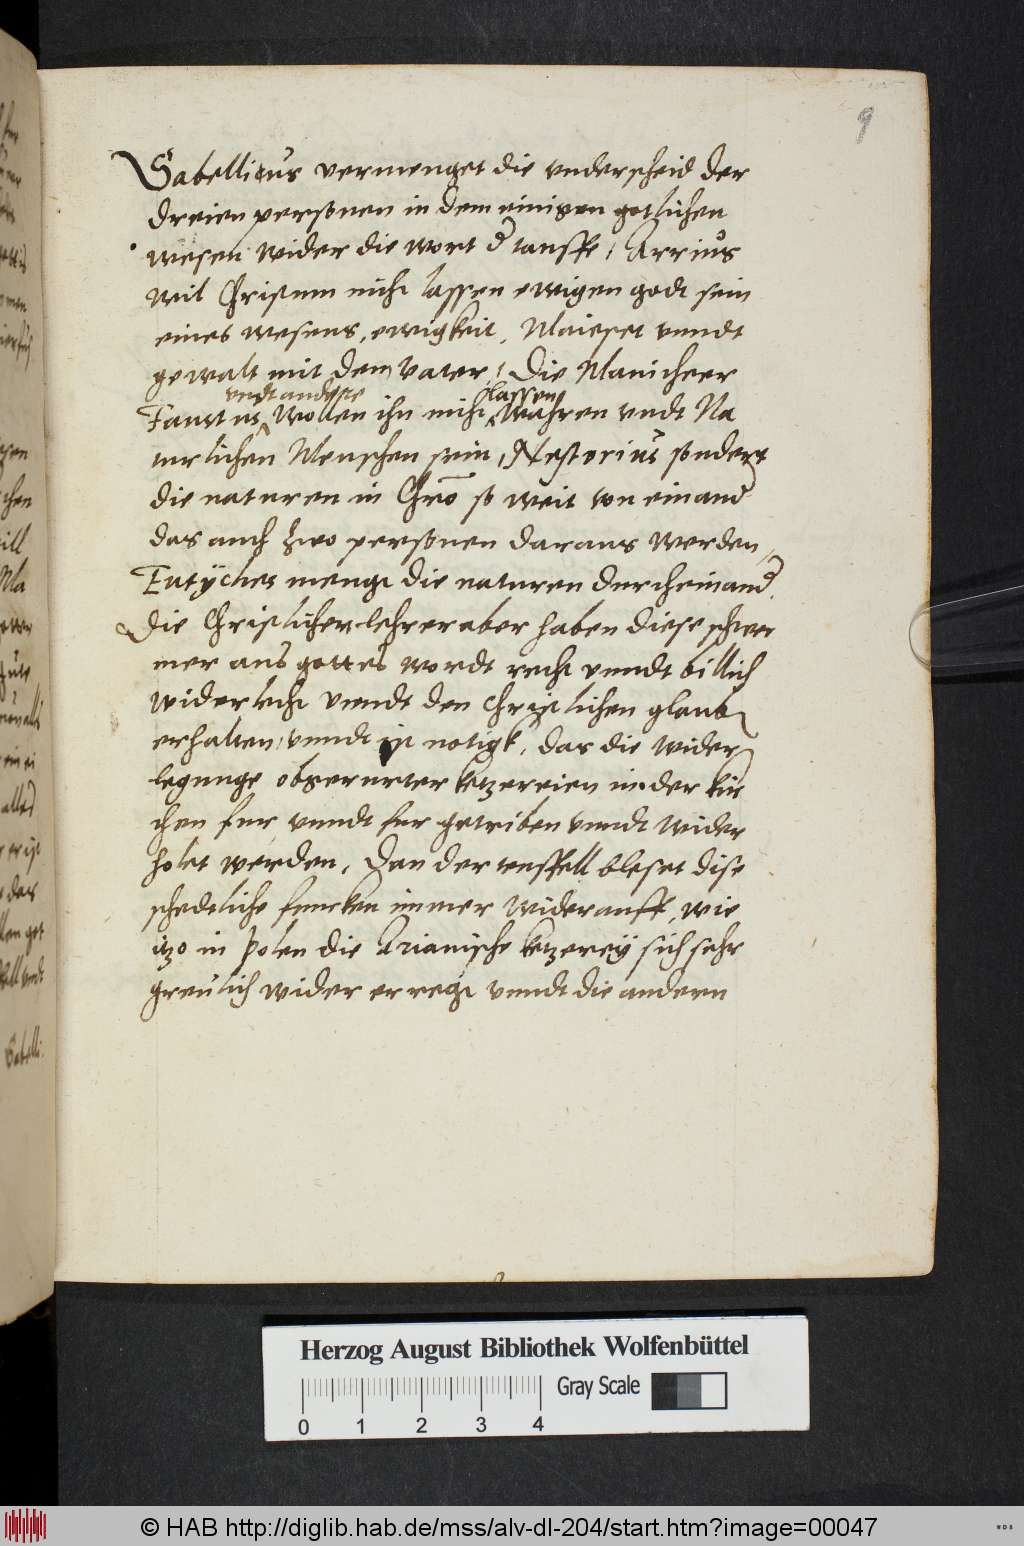 9
Sabellicus vermenget die vnderscheid der
dreien personen in dem einigen gotlichen
wesen wider die wort d tauffe, Arrius
wil Christum nicht lassen ewigen godt sein
eines wesens, ewigkeit, Maieset vnndt
gewalt mit dem Vater, Die Manicheer
vndt andere lassen
Faustus wollen ihn nicht wahren vndt Na
turlichen Menschen sein, Nestorius sondert
die naturen in Chro so weit von einand
das auch zwo personen daraus werden,
Eutÿches mengt die naturen durcheinand.
Die Christlichen lehrer aber haben diese schwer
mer aus gottes wordt recht vnndt billich
widerlecht vnndt den christlichen glaub
erhalten, vnndt ist notigk, das die wider
legunge obberurter ketzereien in der kir
chen fur vnndt fur getriben vnndt wider
holet werden, Dan der teuffell bleset dise
schedtliche funcken immer wider auff, wie
itzo in Polen die Arianische ketzereÿ sich sehr
greulich wider erregt vnndt die andern
Sabelli
Herzog August Bibliothek Wolfenbüttel
Gray Scale
0 1 2 3 4
© HAB http://diglib.hab.de/mss/alv-dl-204/start.htm?image=00047